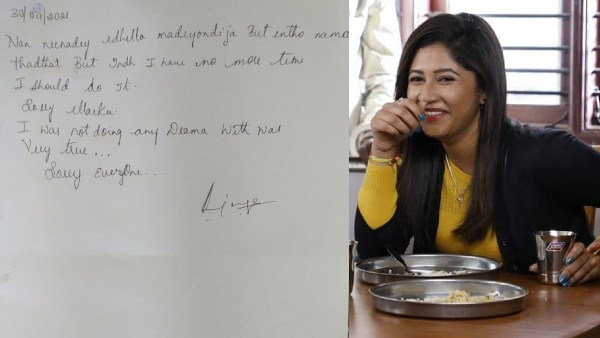 30/09/2021
Nan neenadey edhella madiyondija But entho name
thadthat But Indh I have no more time
I should do it.
Sorry Marku.
I was not doing any Drama With was
Very true...
Sorry EveryOne...